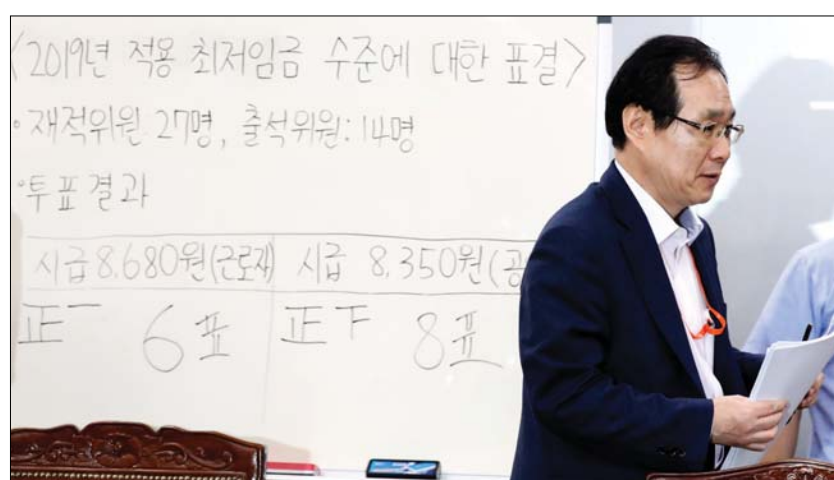 <2019년 적용 최저임금 수준에 대한 표결>
• 재적위원 27명, 출석위원: 14명
• 투표결과
시급 8,680원(근로자) 시급 8,350원(공
正一 6표 正下 8표